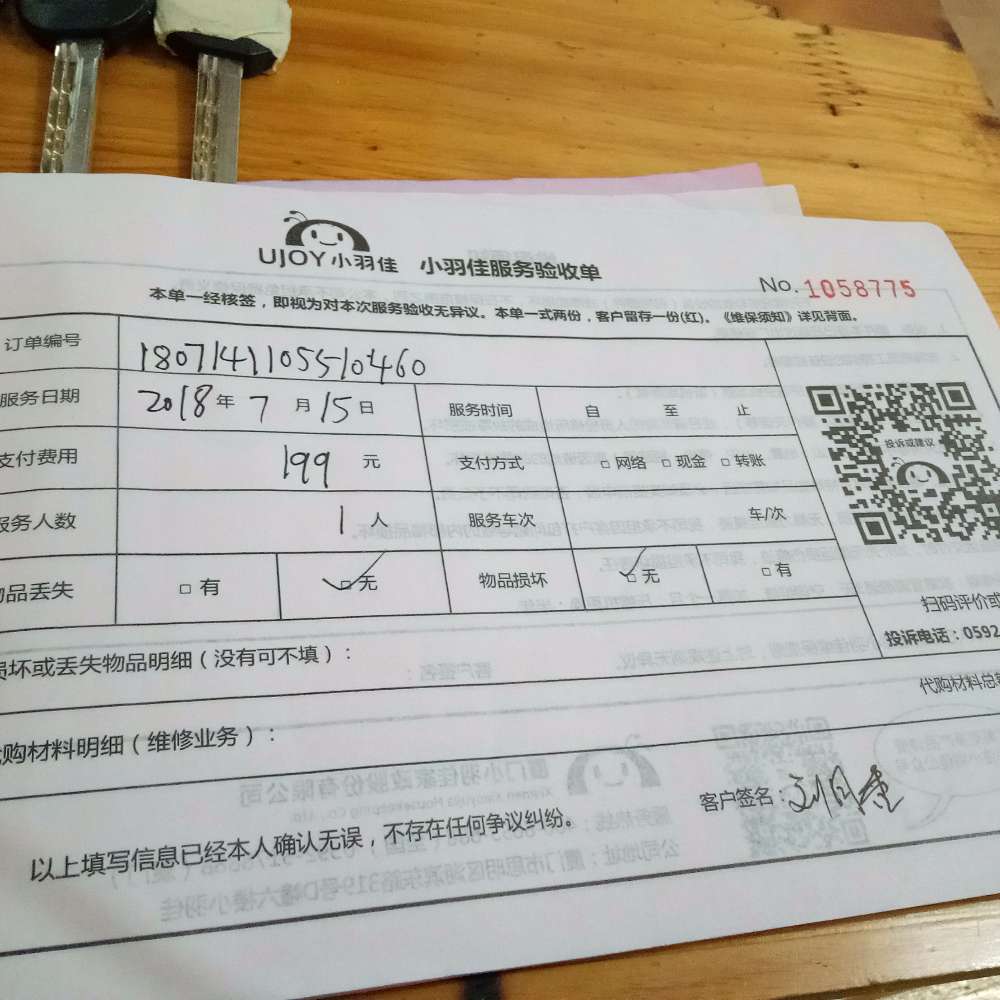 UJOY小羽佳 小羽佳服务验收单
No. 1058775
本单一经核签，即视为对本次服务验收无异议。本单一式两份，客户留存一份(红)。《维保须知》详见背面。
订单编号 1807141105510460
服务日期 2018年 7月 15日 服务时间 自 至 止
支付费用 199 元 支付方式 □ 网络 □ 现金 □ 转账
服务人数 1 人 服务车次 车/次
物品丢失 □ 有 □ 无 物品损坏 □ 无 □ 有
投诉或建议
扫码评价或
投诉电话：0592
损坏或丢失物品明细（没有可不填）：
代购材料总
代购材料明细（维修业务）：
客户签名：
以上填写信息已经本人确认无误，不存在任何争议纠纷。